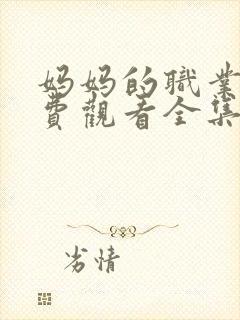 妈妈的職業
費觀看全集
劣情